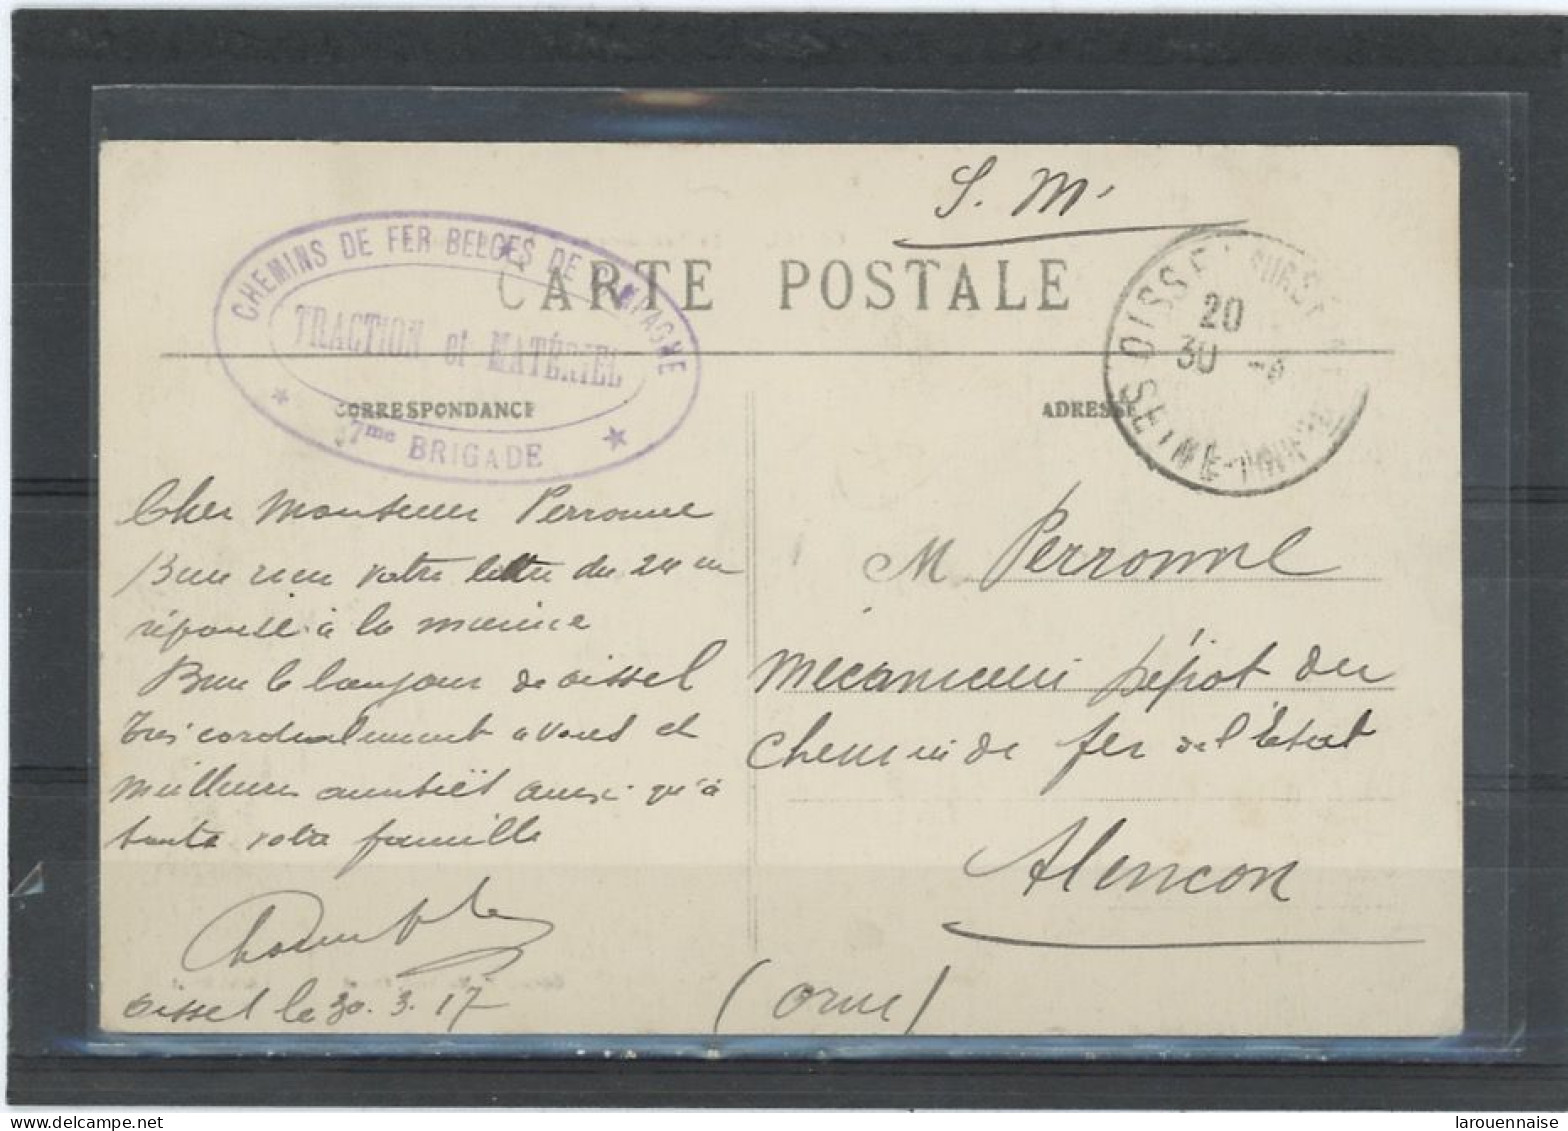 S. M.
CHEMINS DE FER BELGES DE CAMPAGNE
TRACTION et MATÉRIEL
37me BRIGADE
CARTE POSTALE
OISSEL SUR SEINE
20
30 -3
SEINE-INFRE
CORRESPONDANCE
ADRESSE
Cher Monsieur Perronne
Bien reçu votre lettre du 24 en
réponse à la mienne
Bien le bonjour de oissel
très cordialement a vous et
meilleures amitiés ainsi qu'à
toute votre famille
oissel le 30.3.17
M Perronne
Mécanicien Dépôt du
chemin de fer de l'Etat
Alencon
(Orne)
larouennaise